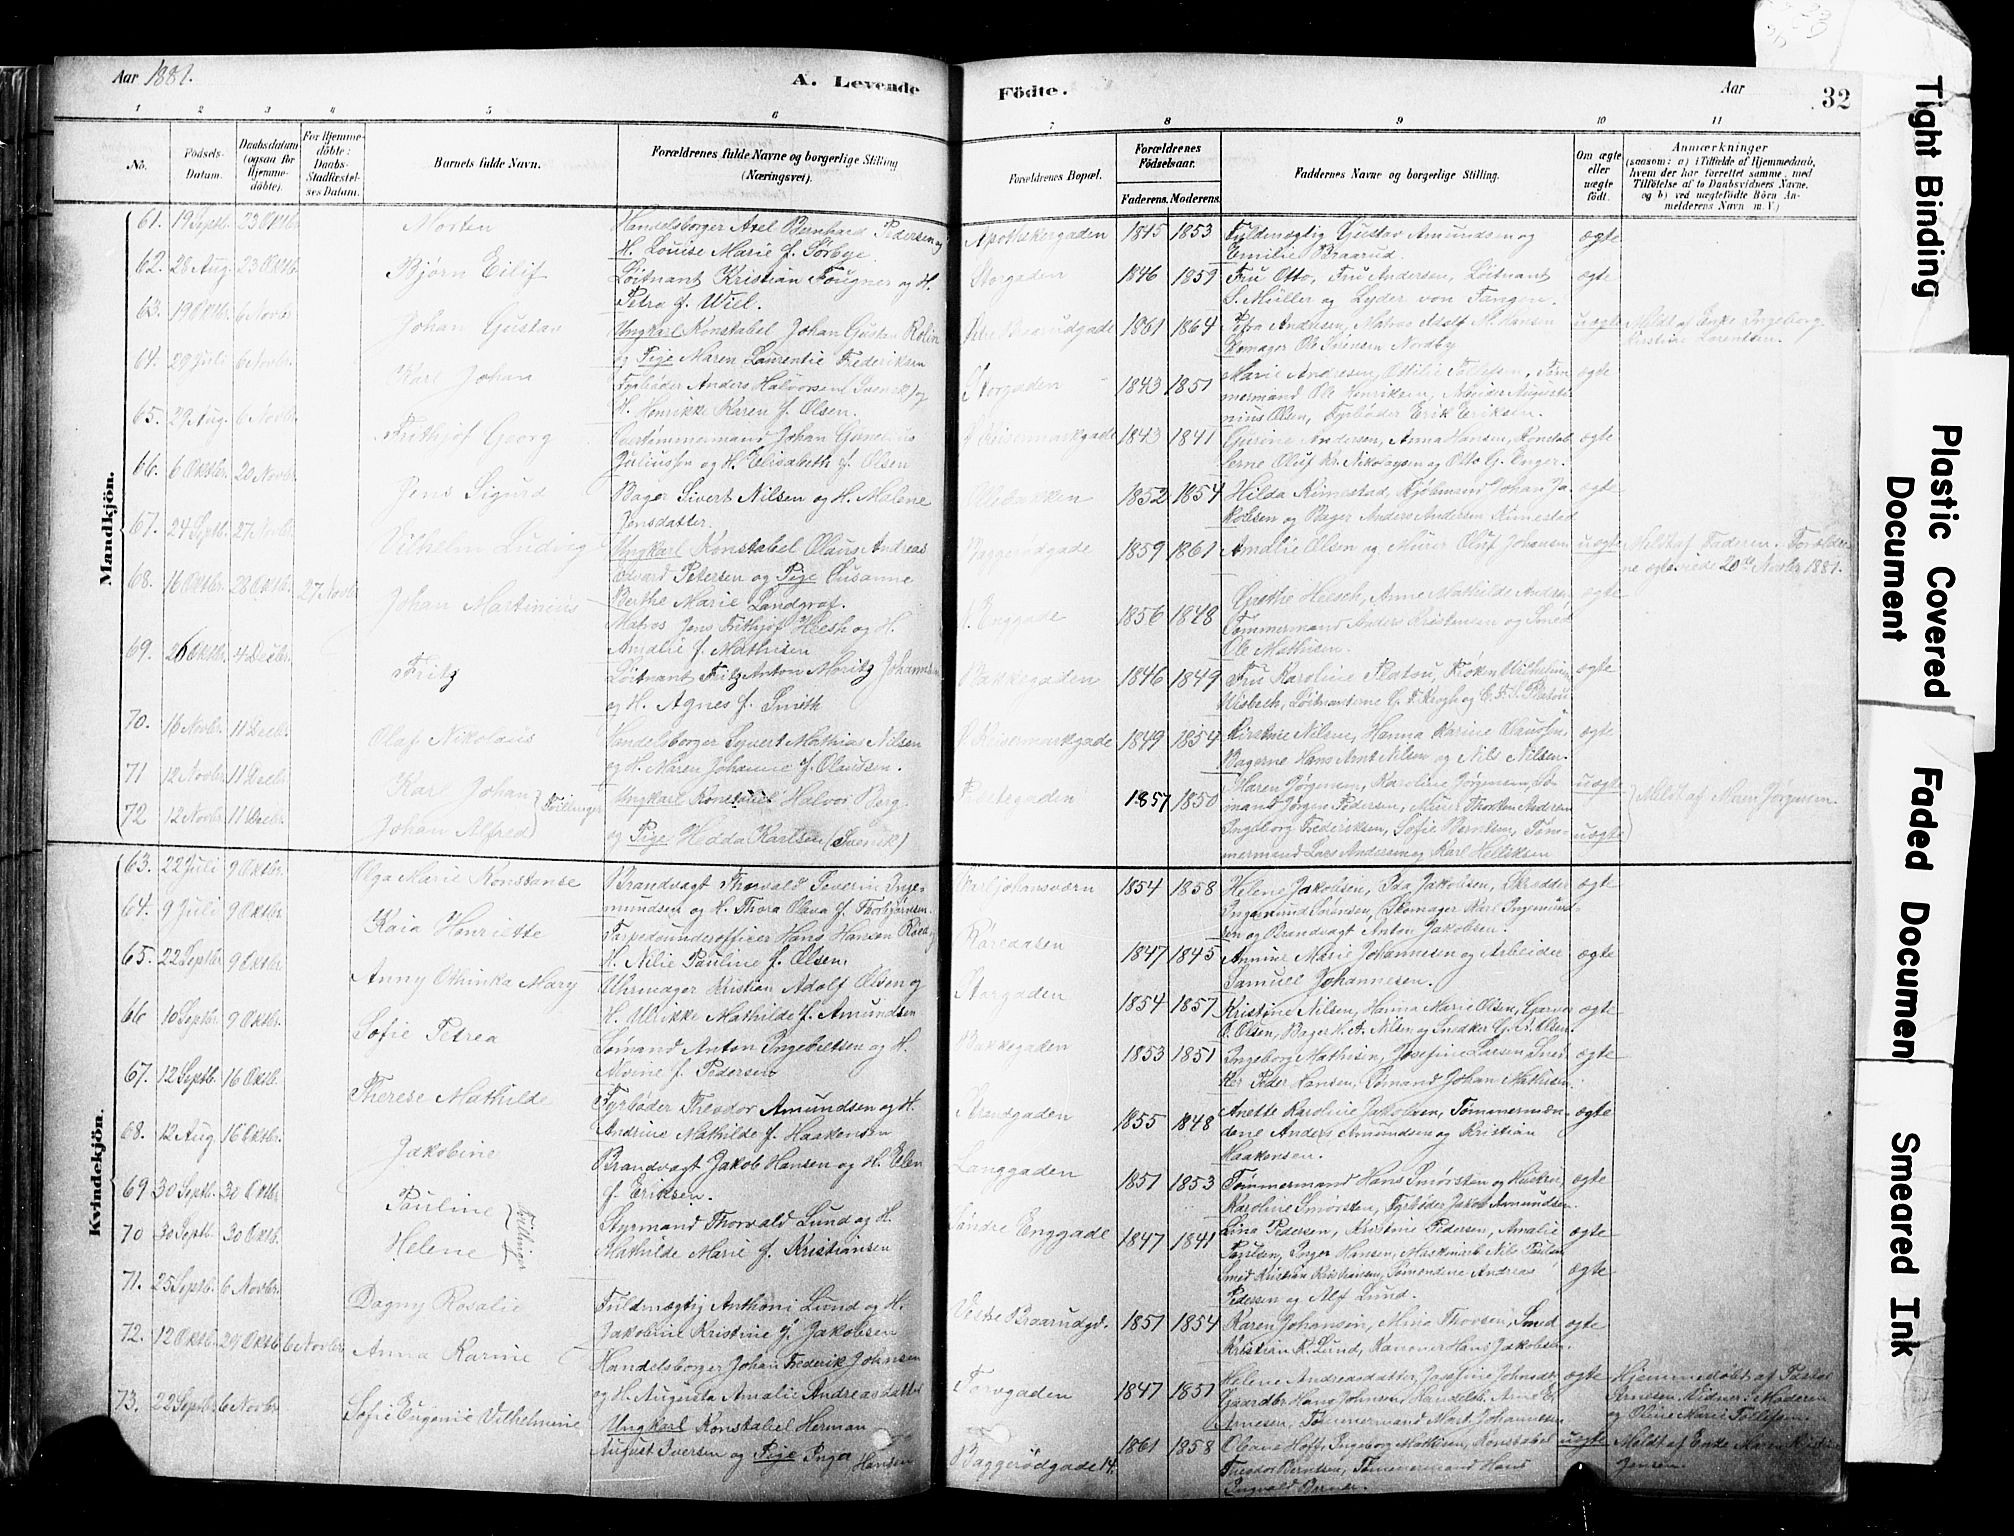 Aar 1881.
A. Levende
Födte.
Aar
32
1 2 3 4 5 6 7 8 9 10 11
No.
Födsels-Datum.
Daabsdatum (ogsaa for Hjemmedöbte).
For Hjemmedöbte: Daabs-Stadfæstelses Datum.
Barnets fulde Navn.
Forældrenes fulde Navne og borgerlige Stilling (Næringsvei).
Forældrenes Bopæl.
Forældrenes Födselsaar.
Faderens. Moderens.
Faddernes Navne og borgerlige Stilling.
Om ægte eller uægte födt.
Anmærkninger
(saasom: a) i Tilfælde af Hjemmedaab,
hvem der har forrettet samme, med
Tilföielse af to Daabsvidners Navne,
og b) ved uægtefödte Börn Anmelderens Navn m. V.)
Mandkjön.
61. 19 Septb. 23 Oktb. Morten
Handelsborger Axel Bernhard Pedersen og
H. Louise Marie f. Sörbye.
Apothekergaden 1845 1853
Fuldmægtig Gustav Amundsen og
Emilie Braarud.
ægte
62. 28 Aug. 23 Oktb. Bjørn Eilif
Löitnant Kristian Fougner og H.
Petra f. Wiel.
Storgaden 1846 1859
Fru Otto, Fru Andersen, Löitnant
S. Müller og Lyder von Tangen.
ægte
63. 19 Oktb. 6 Novbr. Johan Gustav
Ungkarl Konstabel Johan Gustav
og Pige Maren Laurentie Frederiksen
1861 1864
Petra Andresen, Matros Adolf M. Hansen
Skomager Ole Sörensen Nordby
uægte
Meldt af Enke Ingeborg
Kirstine Lorentsen.
64. 28 Juli 6 Novbr. Karl Johan
Fyrböder Anders Halvorsen (Svensk) og
H. Henrikke Karen f. Olsen.
Storgaden 1843 1851
Marie Andresen, Ottilie Tollefsen, Töm-
mermand Ole Henriksen,
Olsen, Fyrböder Erik Eriksen.
ægte
65. 29 Aug. 6 Novbr. Frithjof Georg
Overtömmermand Johan Gunelius
Juliussen og H. Elisabeth f. Olsen
1843 1841
Gurine Andersen, Anna Hansen, Konstab-
lerne Oluf Kr. Nikolaysen og Otto G. Enger.
ægte
66. 6 Oktbr. 20 Novbr. Jens Sigurd
Bager Sivert Nilsen og H. Malene
Jensdatter.
1852 1854
Hilda Rimestad, Kjöbmand Johan Ja-
kobsen og Bager Anders Andersen Rimestad
ægte
67. 24 Septb. 27 Novbr. Vilhelm Ludvig
Ungkarl Konstabel Olaus Andreas
Edvard Petersen og Pige Susanne
Berthe Marie Landgraf.
Baggerödgade 1859 1861
Amalie Olsen og Murer Oluf Johansen
uægte
Meldt af Faderen. Foræld-
ne ægteviede 20de Novbr 1881.
68. 16 Oktbr. 28 Oktbr. 27 Novbr. Johan Martinius
Matros Jens Frithjof Heesh og H.
Amalie f. Mathisen
Enggade 1856 1848
Grethe Heesch, Anne Mathilde Andersen,
Tömmermand Anders Kristensen og Smed
Ole Mathisen.
ægte
69. 26 Oktbr. 4 Decbr. Fritz
Löitnant Fritz Anton Moritz Johannsen
og H. Agnes f. Smith
Bakkegaden 1846 1849
Fru Karoline Platou, Frökn Vilhelmine
Wisbech, Löitnanterne G. F. Krogh og C. F. S. Platou
ægte
70. 16 Novbr. 11 Decbr. Olaf Nikolaus
Handelsborger Syvert Mathias Nilsen
og H. Maren Johanne f. Olaussen.
1849 1854
Kirstine Nilsen, Hanna Karine Olaussen,
Bagerne Hans Arnt Nilsen og Nils Nilsen.
ægte
71 12 Novbr. 11 Decbr. Karl Johan
72 12 Novbr. 11 Decbr. Johan Alfred
Tvillinger
Ungkarl Konstabel Halvor Berg
og Pige Hedda Karlsen (Svensk)
1857 1850
Maren Jörgensen, Karoline Jörgensen, Sö-
mand Jörgen Pedersen, Murer Thorsten Andersen
Ingeborg Frederiksen, Sofie Berntsen, Töm-
mermand Lars Andersen og Karl Helliksen
uægte
uægte
Meldt af Maren Jörgensen.
Kvindekjön.
63. 22 Juli 9 Oktbr. Olga Marie Konstanse
Brandvagt Thorvald Severin Inge-
mundsen og H. Thora Olava f. Thorbjørnsen.
Karljohansværn 1854 1858
Helene Jakobsen, Ida Jakobsen, Skrædder
Ingemund Sörensen, Skomager Karl Ingemund-
sen og Brandvagt Anton Jakobsen.
ægte
64. 9 Juli 9 Oktbr. Kaia Henriette
Torpedounderofficer Hans Hansen Röed og
H. Nilie Pauline f. Olsen.
Röredaasen 1847 1845
Annine Marie Johannesen og Arbeider
Samuel Johannesen.
ægte
65. 22 Septbr. 9 Oktbr. Anny Othinka Mary
Uhrmager Kristian Adolf Olsen og
H. Ulrikke Mathilde f. Amundsen
Storgaden 1854 1857
Kristine Nilsen, Hanna Marie Olsen, Garver
O. Olsen, Bager H. A. Nilsen og Snedker G. A. Olsen.
ægte
66 10 Septbr. 9 Oktbr. Sofie Petrea
Sömand Anton Ingebretsen og H.
Alvine f. Pedersen
Bakkegaden 1853 1851
Ingeborg Mathisen, Josefine Larsen, Sned-
ker Peder Hansen, Sömand Johan Mathisen.
ægte
67. 12 Septb. 16 Oktb. Therese Mathilde
Fyrböder Theodor Amundsen og H.
Andrine Mathilde f. Haakensen
Strandgaden 1855 1848
Anette Karoline Jakobsen, Tömmermæn-
dene Anders Amundsen og Kristian
Haakensen.
ægte
68. 12 Aug 16 Oktbr. Jakobine
Brandvagt Jakob Hansen og H. Elen
f. Eriksen.
Langgaden 1851 1853
Tömmermand Hans Smörsten og Hustru
Karoline Smörsten, Fyrböder Jakob Amundsen.
ægte
69 30 Septb. 30 Oktbr. Pauline
70 30 Septb. 30 Oktbr. Helene
Tvillinger
Styrmand Thorvald Lund og H.
Mathilde Marie f. Kristiansen
Söndre Enggade 1847 1841
Lina Pedersen, Kristine Pedersen, Amalie
Paulsen, Inger Hansen, Maskinist Nils Paulsen
Smed Kristian Kristiansen, Sömændene Andreas
Pedersen og Alf Lund.
ægte
ægte
71. 25 Septbr. 6 Novbr. Dagny Rosalie
Fuldmægtig Anthoni Lund og H.
Jakobine Kristine f. Jakobsen
Vestre Braarudgd. 1851 1854
Karen Johansen, Mina Thorsen, Smed
Kristian K. Lund, Kanoner Hans Jakobsen.
ægte
72. 12 Oktbr. 29 Oktb. 6 Novbr. Anna Karine
Handelsborger Johan Frederik Johnsen
og H. Augusta Amalie Andreasdatter
Torvgaden 1847 1851
Helene Andreasdatter, Josefine Johnsen,
Gaardbr. Hans Johnsen, Handelsb. Arne E.
Arnesen, Tömmermand Mart. Johannesen
ægte
Hjemmedöbt af Pastor
Arnesen. Vidner: Moderen
og Oline Marie Tollefsen.
73. 22 Septbr. 6 Novbr. Sofie Eugenie Vilhelmine
Ungkarl Konstabel Herman
August Iversen og Pige Inga Hansen
Baggerödgade 14. 1861 1858
Olava Hoff, Ingeborg Mathisen, Konstabel
Theodor Berntsen, Tömmermand Hans
Ingvald Berner.
uægte
Meldt af Enke Maren Kristine
Jensen.
Tight Binding
Plastic Covered Document
Faded Documen
Smeared Ink